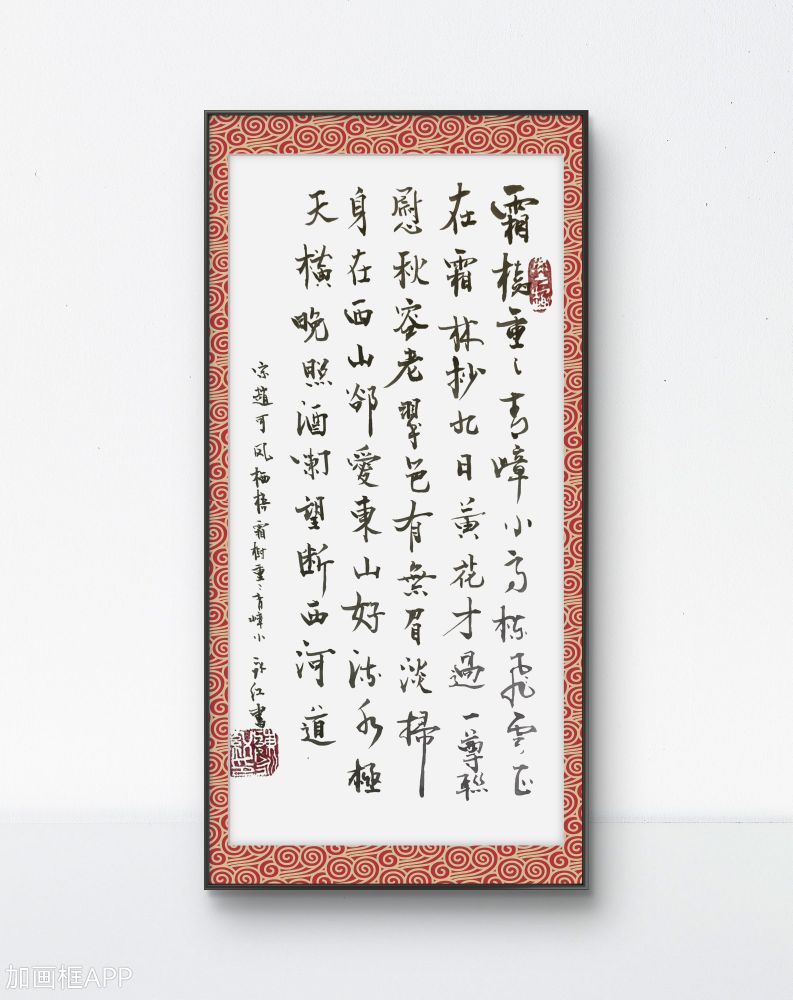 霜樹重〻青嶂小高棟飛雲正
在霜林杪九日黃花才過一尊聊
慰秋容老翠色有無眉淡掃
身在西山卻愛東山好流水極
天橫晚照酒望斷西河道
宋趙可鳳栖梧霜樹重〻青嶂小 江書
加画框APP